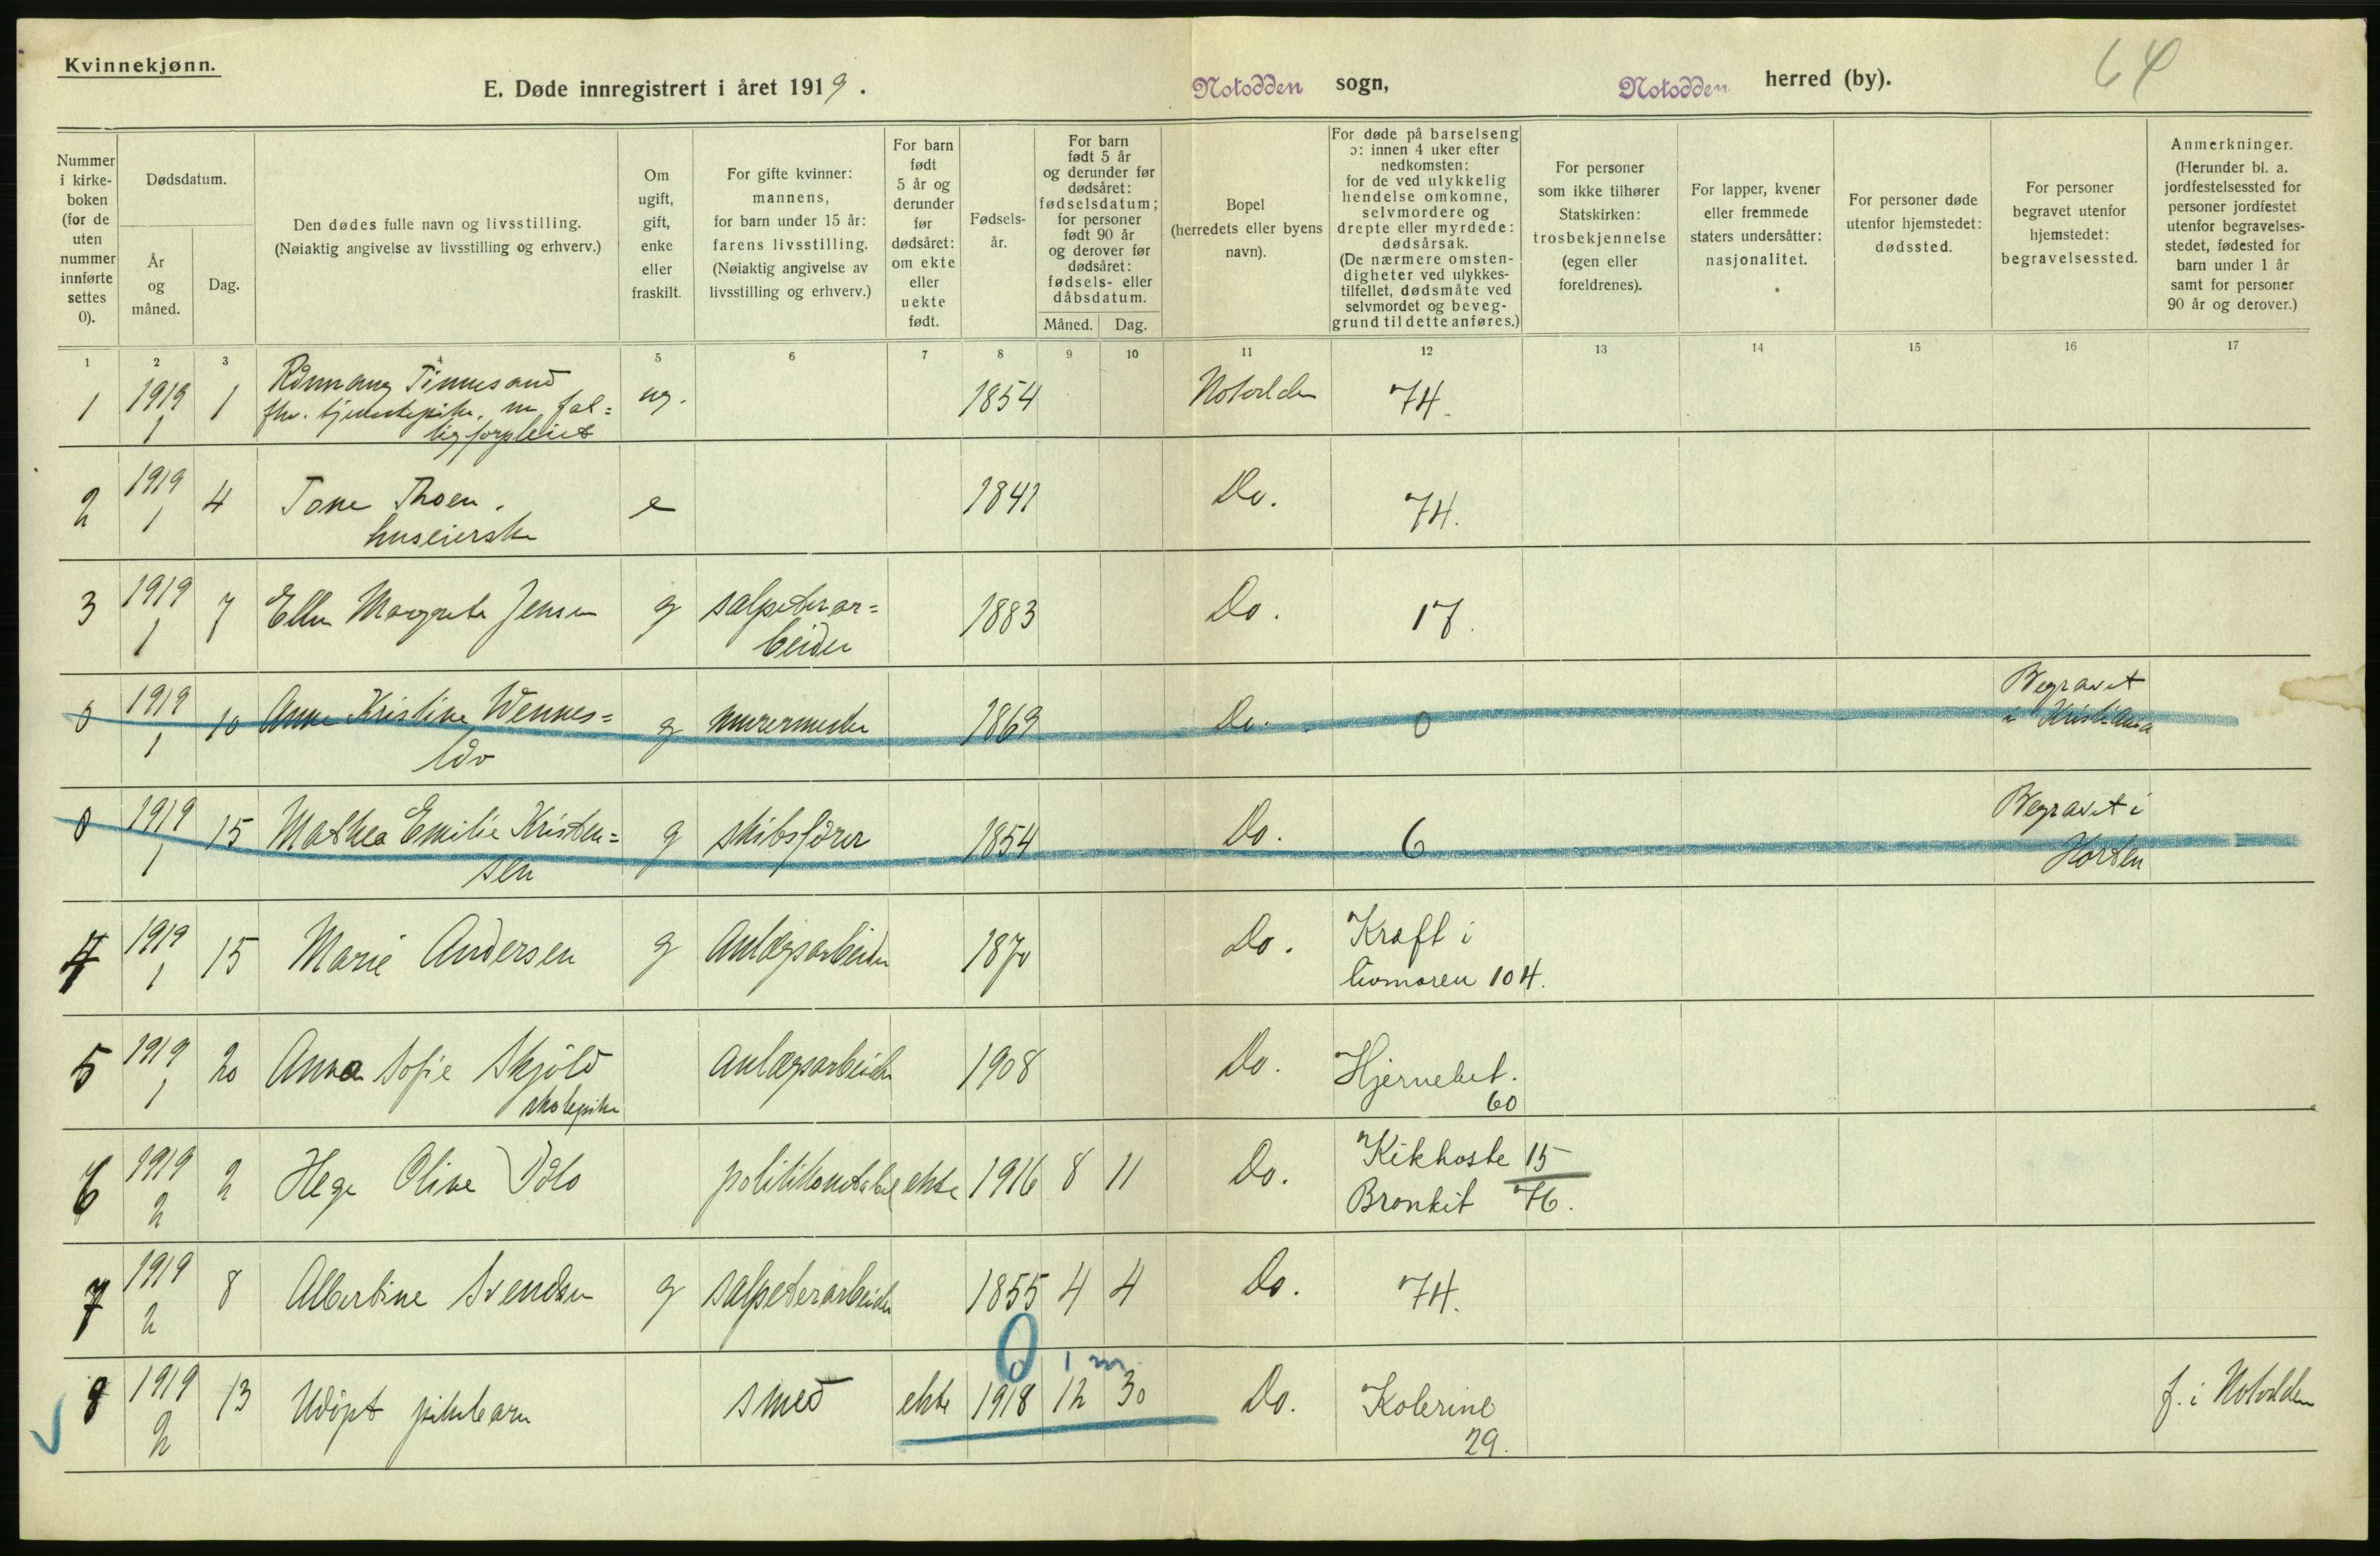 Kvinnekjønn.
E. Døde innregistrert i året 1919.
Notodden sogn,
Notodden herred (by).
64
Nummer
i kirke-
boken
(for de
uten
nummer
innførte
settes
0).
Dødsdatum.
År
og
måned.
Dag.
Den dødes fulle navn og livsstilling.
(Nøiaktig angivelse av livsstilling og erhverv.)
Om
ugift,
gift,
enke
eller
fraskilt.
For gifte kvinner:
mannens,
for barn under 15 år:
farens livsstilling.
(Nøiaktig angivelse av
livsstilling og erhverv.)
For barn
født
5 år og
derunder
før
dødsåret:
om ekte
eller
uekte
født.
Fødsels-
år.
For barn
født 5 år
og derunder før
dødsåret:
fødselsdatum;
for personer
født 90 år
og derover før
dødsåret:
fødsels- eller
dåbsdatum.
Måned.
Dag.
Bopel
(herredets eller byens
navn).
For døde på barselseng
ɔ: innen 4 uker efter
nedkomsten:
for de ved ulykkelig
hendelse omkomne,
selvmordere og
drepte eller myrdede:
dødsårsak.
(De nærmere omsten-
digheter ved ulykkes-
tilfellet, dødsmåte ved
selvmordet og beveg-
grund til dette anføres.)
For personer
som ikke tilhører
Statskirken:
trosbekjennelse
(egen eller
foreldrenes).
For lapper, kvener
eller fremmede
staters undersåtter:
nasjonalitet.
For personer døde
utenfor hjemstedet:
dødssted.
For personer
begravet utenfor
hjemstedet:
begravelsessted.
Anmerkninger.
(Herunder bl. a.
jordfestelsessted for
personer jordfestet
utenfor begravelses-
stedet, fødested for
barn under 1 år
samt for personer
90 år og derover.)
1 2 3 4 5 6 7 8 9 10 11 12 13 14 15 16 17
1 1919 1 Tinnesand ug. 1854 Notodden 74.
1 fhv. tjenestepike, m fat=
tigforpleiet
2 1919 4 Tone Thoen. e 1841 Do. 74.
1 huseierske
3 1919 7 Ellen Margrete Jensen g salpeterar= 1883 Do. 17.
1 beider
0 1919 10 Anne Kristine Wennes= g murermester 1869 Do. 0 Begravet
1 i Kristiania
0 1919 15 Mathea Emilie Kristen= g skibsfører 1854 Do. 6 Begravet i
1 sen Horten
4 1919 15 Marie Andersen g Anlægsarbeider 1870 Do. Kræft i
1 livmoren 104.
5 1919 20 Anna Sofie Skjöld anlægsarbeider 1908 Do. Hjernebet.
1 skolepike 60
6 1919 2 Hege Olive politikonstabel ekte 1916 8 11 Do. Kikhoste 15
2 Bronkit 46.
7 1919 8 Albertine Svendsen g salpeterarbeider 1855 4 4 Do. 74.
2
0 1 m.
8 1919 13 Udöpt pikebarn smed ekte 1918 12 30 Do. Kolerine f. i Notodden
2 29.